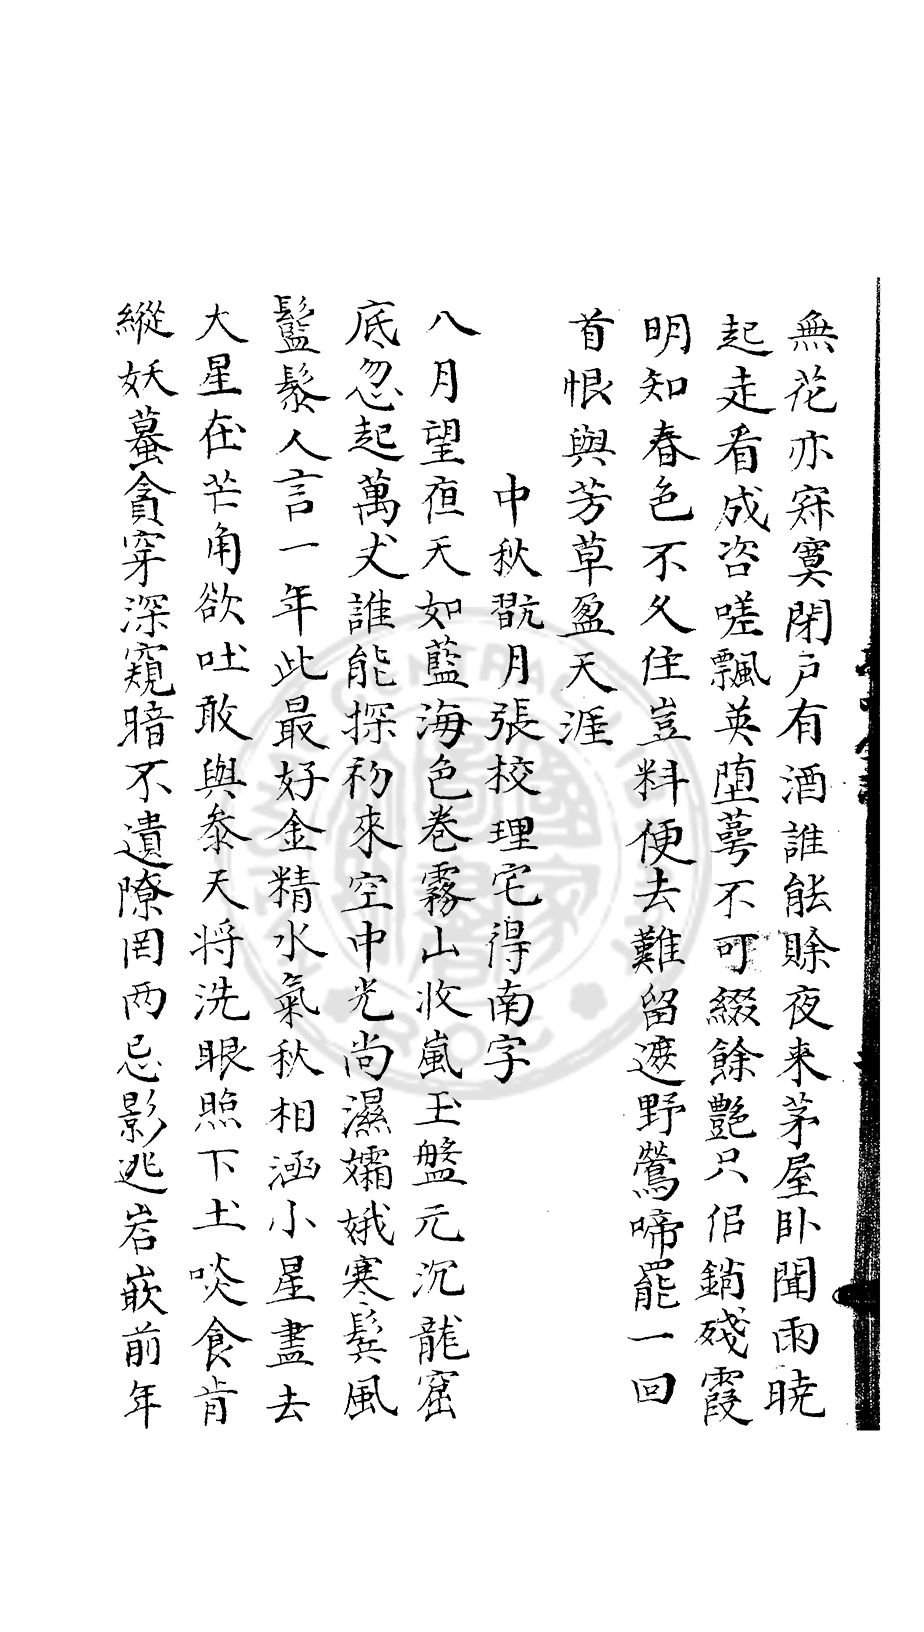 無花亦寂寞閉戶有酒誰能賖夜来茅屋臥聞雨暁
起走看成咨嗟飄英堕萼不可綴餘艷只侣銷殘霞
明知春色不久住豈料便去難留遮野鶯啼罷一回
首恨與芳草盈天涯
中秋翫月張校理宅得南字
八月望夜天如藍海色卷霧山收嵐玉盤元沉龍窟
底忽起萬丈誰能探初來空中光尚濕孀娥寒鬓風
鬛鬖人言一年此最好金精水氣秋相涵小星盡去
大星在芒角欲吐敢與叅天将洗眼照下土啖食肯
縱妖蟇貪穿深窺暗不遺隙罔两忌影逃岩嵌前年
CENTRAL
R.O.C
國家圖書